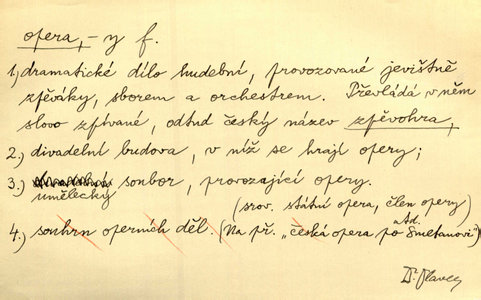 opera, -y f.
1.) dramatické dílo hudební, provozované jevištně
zpěváky, sborem a orchestrem. Převládá v něm
slovo zpívané, odtud český název zpěvohra,
2.) divadelní budova, v níž se hrají opery;
3.) umělecký soubor, provozující opery.
(srov. státní opera, člen opery)
atd.
4.) souhrn operních děl. (Na př. „česká opera po Smetanovi")
Dr. Plavec